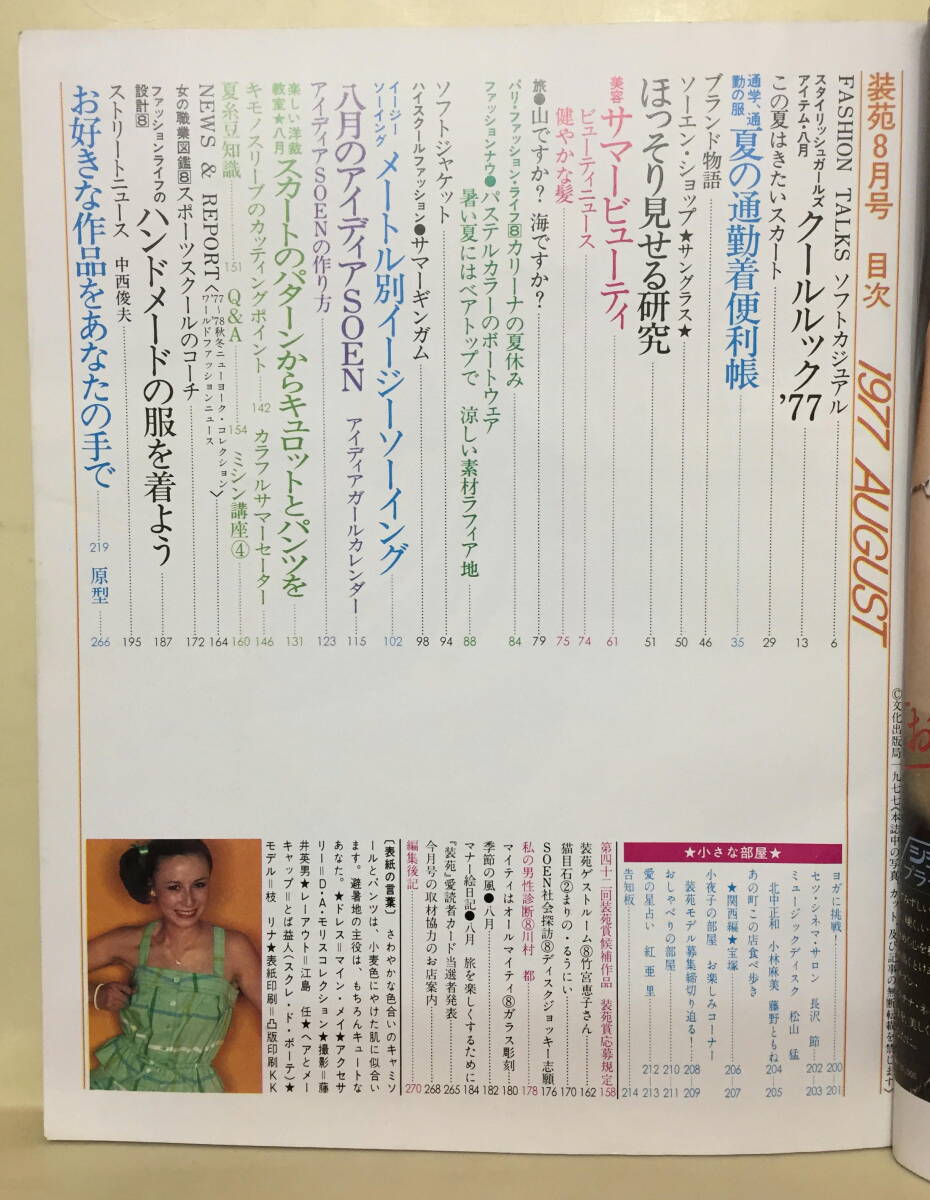 装苑8月号 目次 1977 AUGUST
FASHION TALKS ソフトカジュアル 6
スタイリッシュガールズアイテム・八月 クールルック'77 13
この夏はきたいスカート 29
通学、通勤の服 夏の通勤着便利帳 35
ブランド物語 46
ソーエン・ショップ★サングラス★ 50
ほっそり見せる研究 51
美容 サマービューティ 61
ビューティニュース 74
健やかな髪 75
旅●山ですか? 海ですか? 79
パリ・ファッション・ライフ⑧カリーナの夏休み 84
ファッションナウ●パステルカラーのボートウェア
暑い夏にはベアトップで 涼しい素材ラフィア地 88
ソフトジャケット 94
ハイスクールファッション●サマーギンガム 98
イージーソーイング メートル別イージーソーイング 102
八月のアイディアSOEN アイディアガールカレンダー 115
アイディアSOENの作り方 123
楽しい洋裁教室★八月 スカートのパターンからキュロットとパンツを 131
キモノスリーブのカッティングポイント 142 カラフルサマーセーター 146
夏糸豆知識 151 Q&A 154 ミシン講座④ 160
NEWS & REPORT〈'77〜'78秋冬ニューヨーク・コレクション ワールドファッションニュース〉 164
女の職業図鑑⑧スポーツスクールのコーチ 172
ファッションライフの設計⑧ ハンドメードの服を着よう 187
ストリートニュース 中西俊夫 195
お好きな作品をあなたの手で 219 原型 266
©文化出版局一九七七〈本誌中の写真 カット 及び記事の無断転載を禁じます〉
★小さな部屋★
ヨガに挑戦! 200 201
セッ・シネマ・サロン 長沢 節 202
ミュージックディスク 松山 猛 203
北中正和 小林麻美 藤野ともね 204 205
あの町この店食べ歩き 206
★関西編★宝塚 207
小夜子の部屋 お楽しみコーナー 209
装苑モデル募集締切り迫る! 208
おしゃべりの部屋 210 211
愛の星占い 紅 亜里 212 213
告知板 214
第四十二回装苑賞候補作品 装苑賞応募規定 158
装苑ゲストルーム⑧竹宮恵子さん 162
猫目石②まりの・るうにい 170
SOEN社会探訪⑧ディスクジョッキー志願 176
私の男性診断⑧川村 都 178
マイティはオールマイティ⑧ガラス彫刻 180
季節の風●八月 182
マナー絵日記●八月 旅を楽しくするために 184
『装苑』愛読者カード当選者発表 265
今月号の取材協力のお店案内 268
編集後記 270
〔表紙の言葉〕 さわやかな色合いのキャミソ
ールとパンツは、小麦色にやけた肌に似合い
ます。避暑地の主役は、もちろんキュートな
あなた。★ドレス=マイン・メイ★アクセサ
リー=D・A・モリスコレクション★撮影=藤
井英男★レーアウト=江島 任★ヘアとメー
キャップ=とば益人(スクレ・ド・ボーテ)★
モデル=枝 リナ★表紙印刷=凸版印刷KK